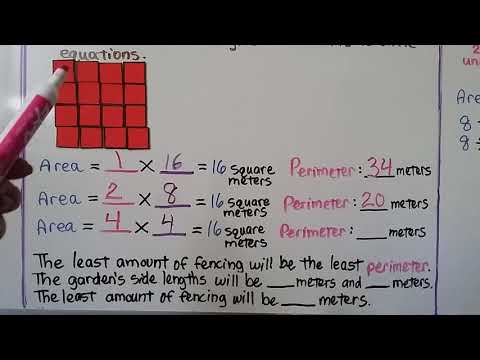 equations.
Area = 1 × 16 = 16 square meters Perimeter: 34 meters
Area = 2 × 8 = 16 square meters Perimeter: 20 meters
Area = 4 × 4 = 16 square meters Perimeter: ___ meters
The least amount of fencing will be the least perimeter.
The garden's side lengths will be ___ meters and ___ meters.
The least amount of fencing will be ___ meters.
Area
8
8